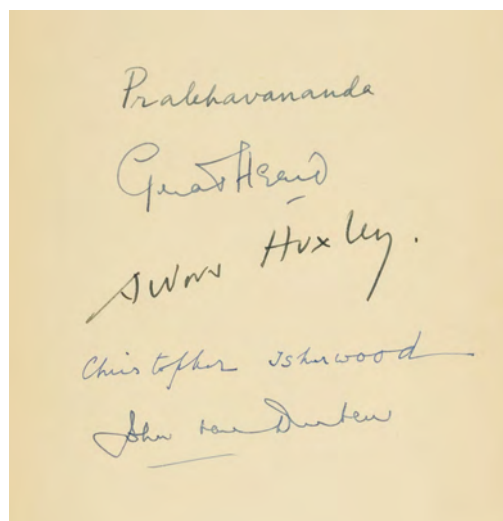 Prabhavananda
Gerald Heard
Aldous Huxley.
Christopher Isherwood
John van Druten